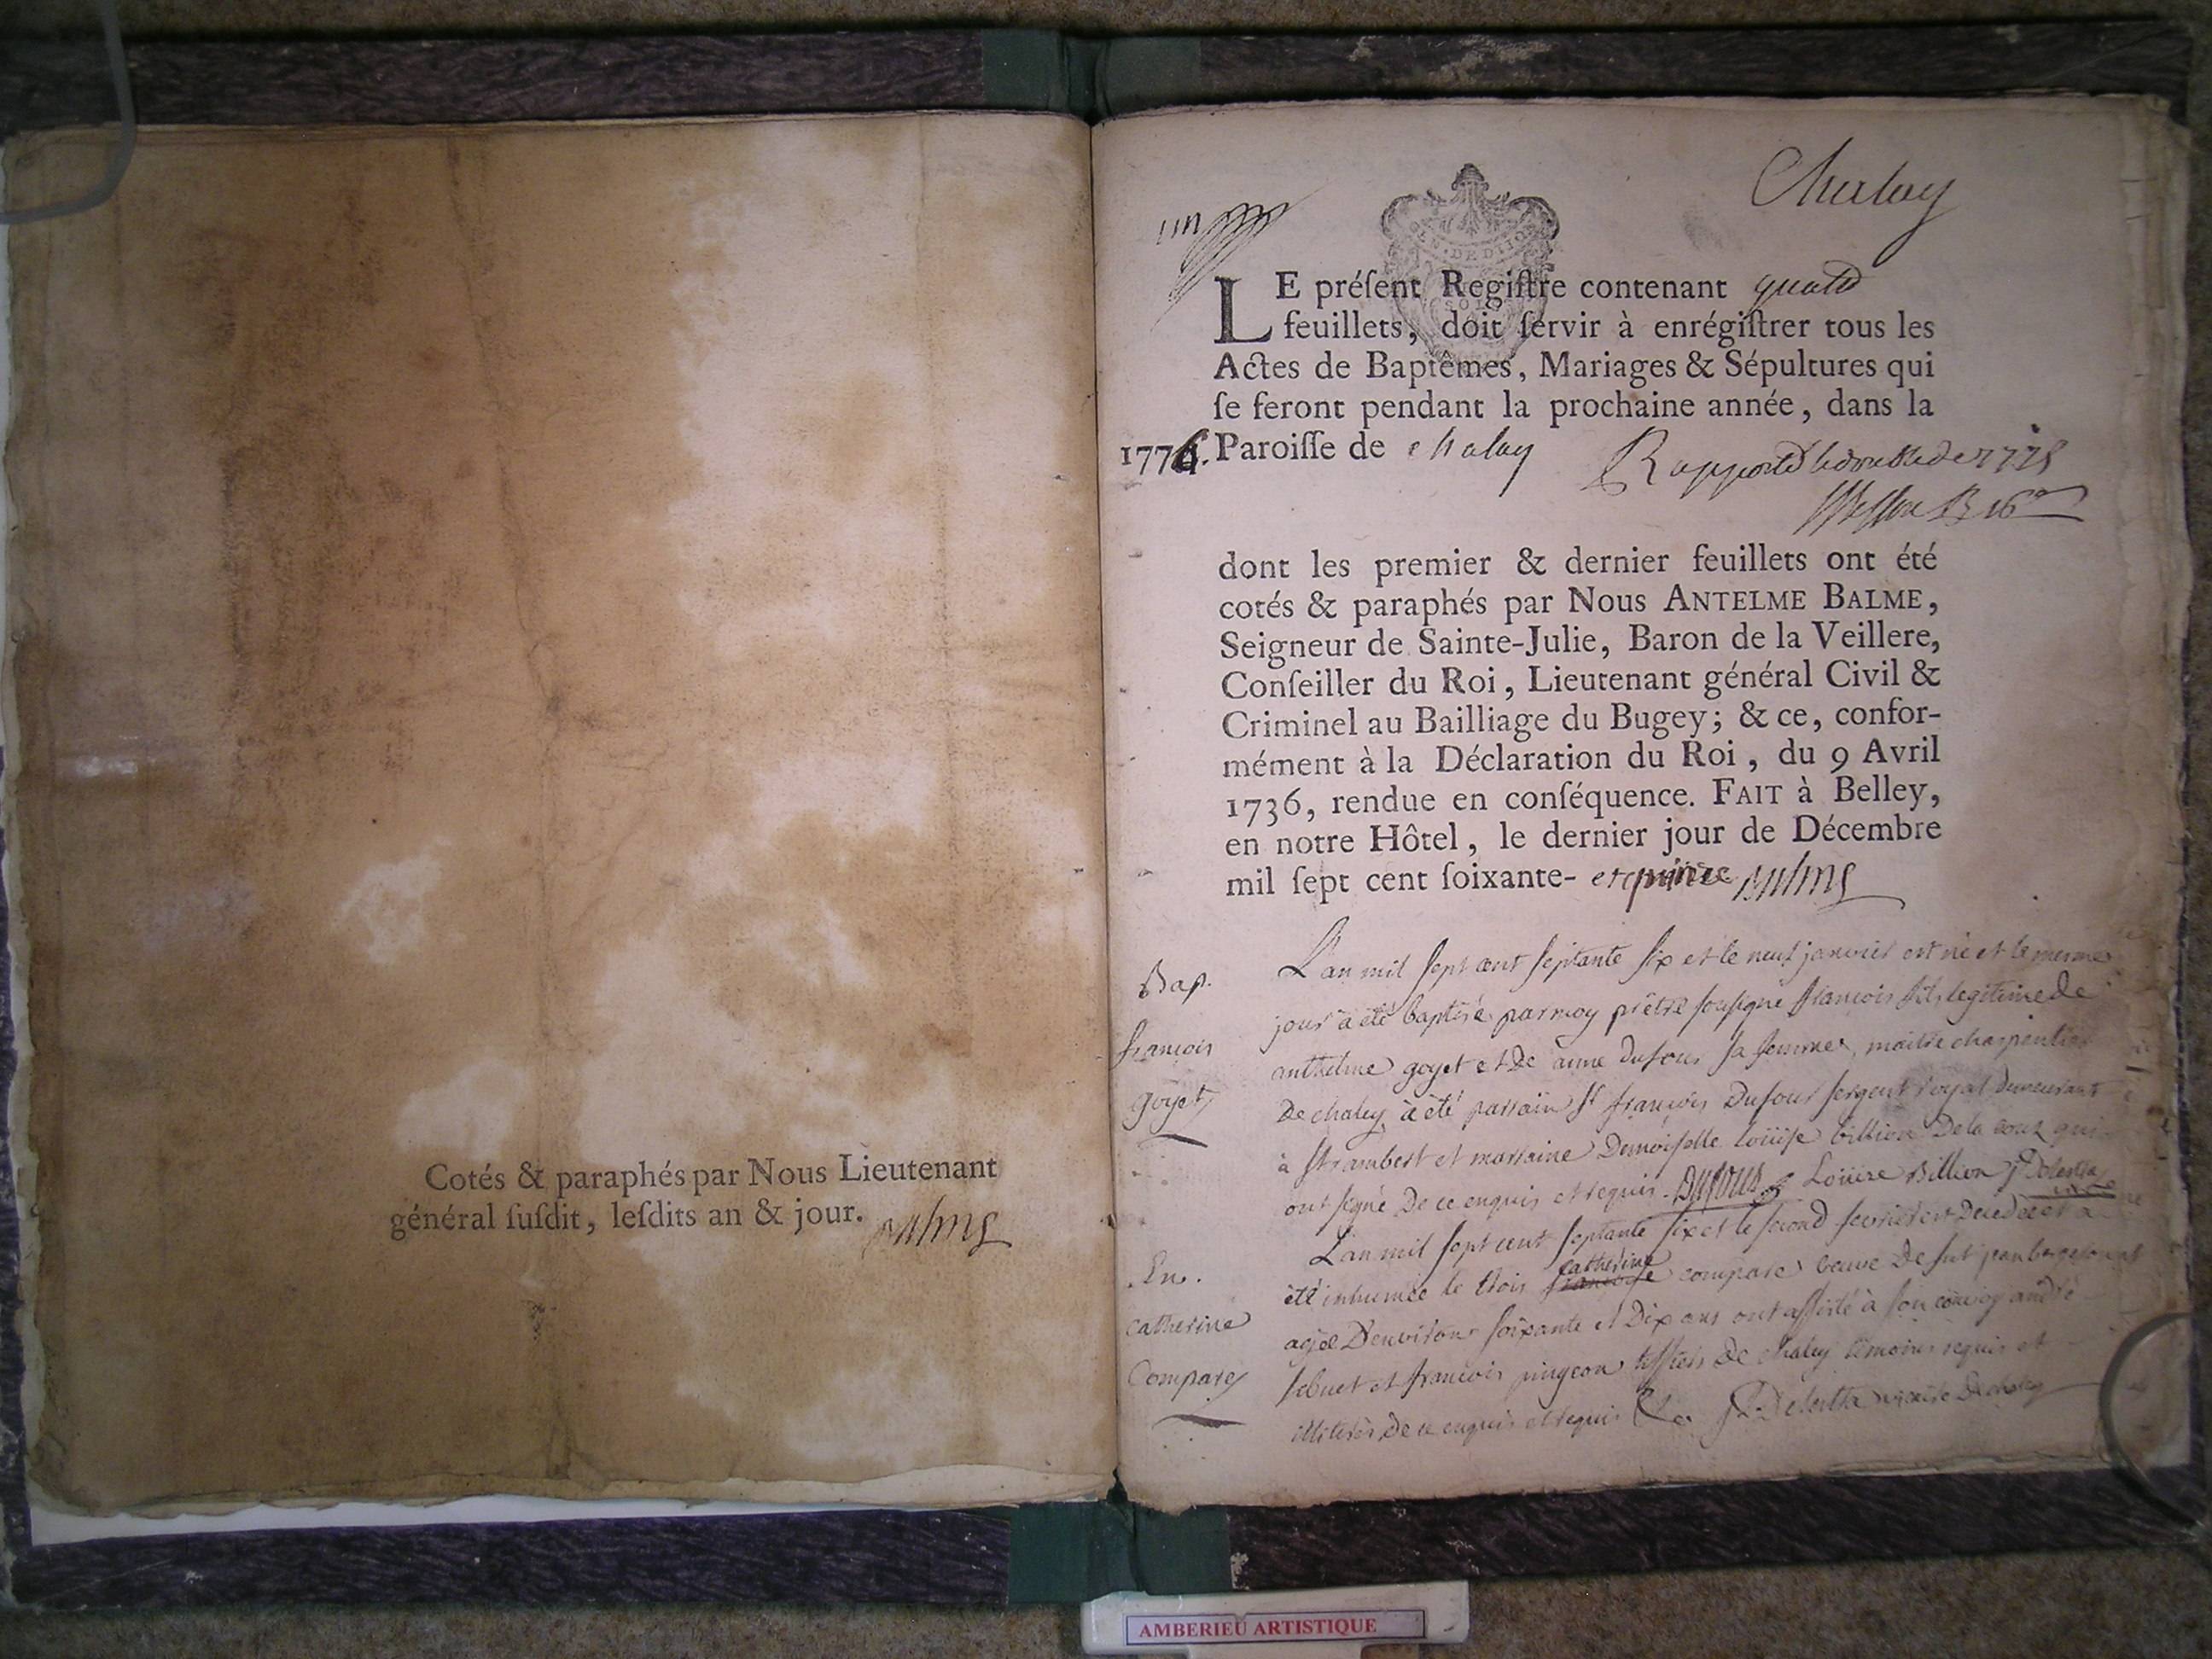 Cotés & paraphés par Nous Lieutenant
général ſuſdit, leſdits an & jour.
Balme
un
Chaley
LE préſent Regiſtre contenant quatre
feuillets, doit ſervir à enrégiſtrer tous les
Actes de Baptêmes, Mariages & Sépultures qui
ſe feront pendant la prochaine année, dans la
1776. Paroiſſe de chaley
Rapporté le double de 1775
dont les premier & dernier feuillets ont été
cotés & paraphés par Nous ANTELME BALME,
Seigneur de Sainte-Julie, Baron de la Veillere,
Conſeiller du Roi, Lieutenant général Civil &
Criminel au Bailliage du Bugey; & ce, confor-
mément à la Déclaration du Roi, du 9 Avril
1736, rendue en conſéquence. FAIT à Belley,
en notre Hôtel, le dernier jour de Décembre
mil ſept cent ſoixante- et quinze Balme
Bap.
françois
goyet
L'an mil sept cent septante six et le neuf janvier est né et le mesme
jour à été baptisé par moy prêtre sousigné françois fils legitime de
anthelme goyet et De anne dufour sa femme, maitre charpentier
De chaley, à été parrain Sr françois Dufour sergent royal demeurant
à St rambert et marraine Demoiselle loüise billion De la cour qui
ont signé De ce enquis et requis. DUFOUR Loüise Billion
En.
catherine
Compare
L'an mil sept cent septante six et le second fevrier est Decedée et a
été inhumée le trois catherine compare veuve De fut jean
agée D'environ soixante et Dix ans ont assisté à son convoy andré
et françois pingeon tissiers De chaley temoins requis et
illiterés, De ce enquis et requis